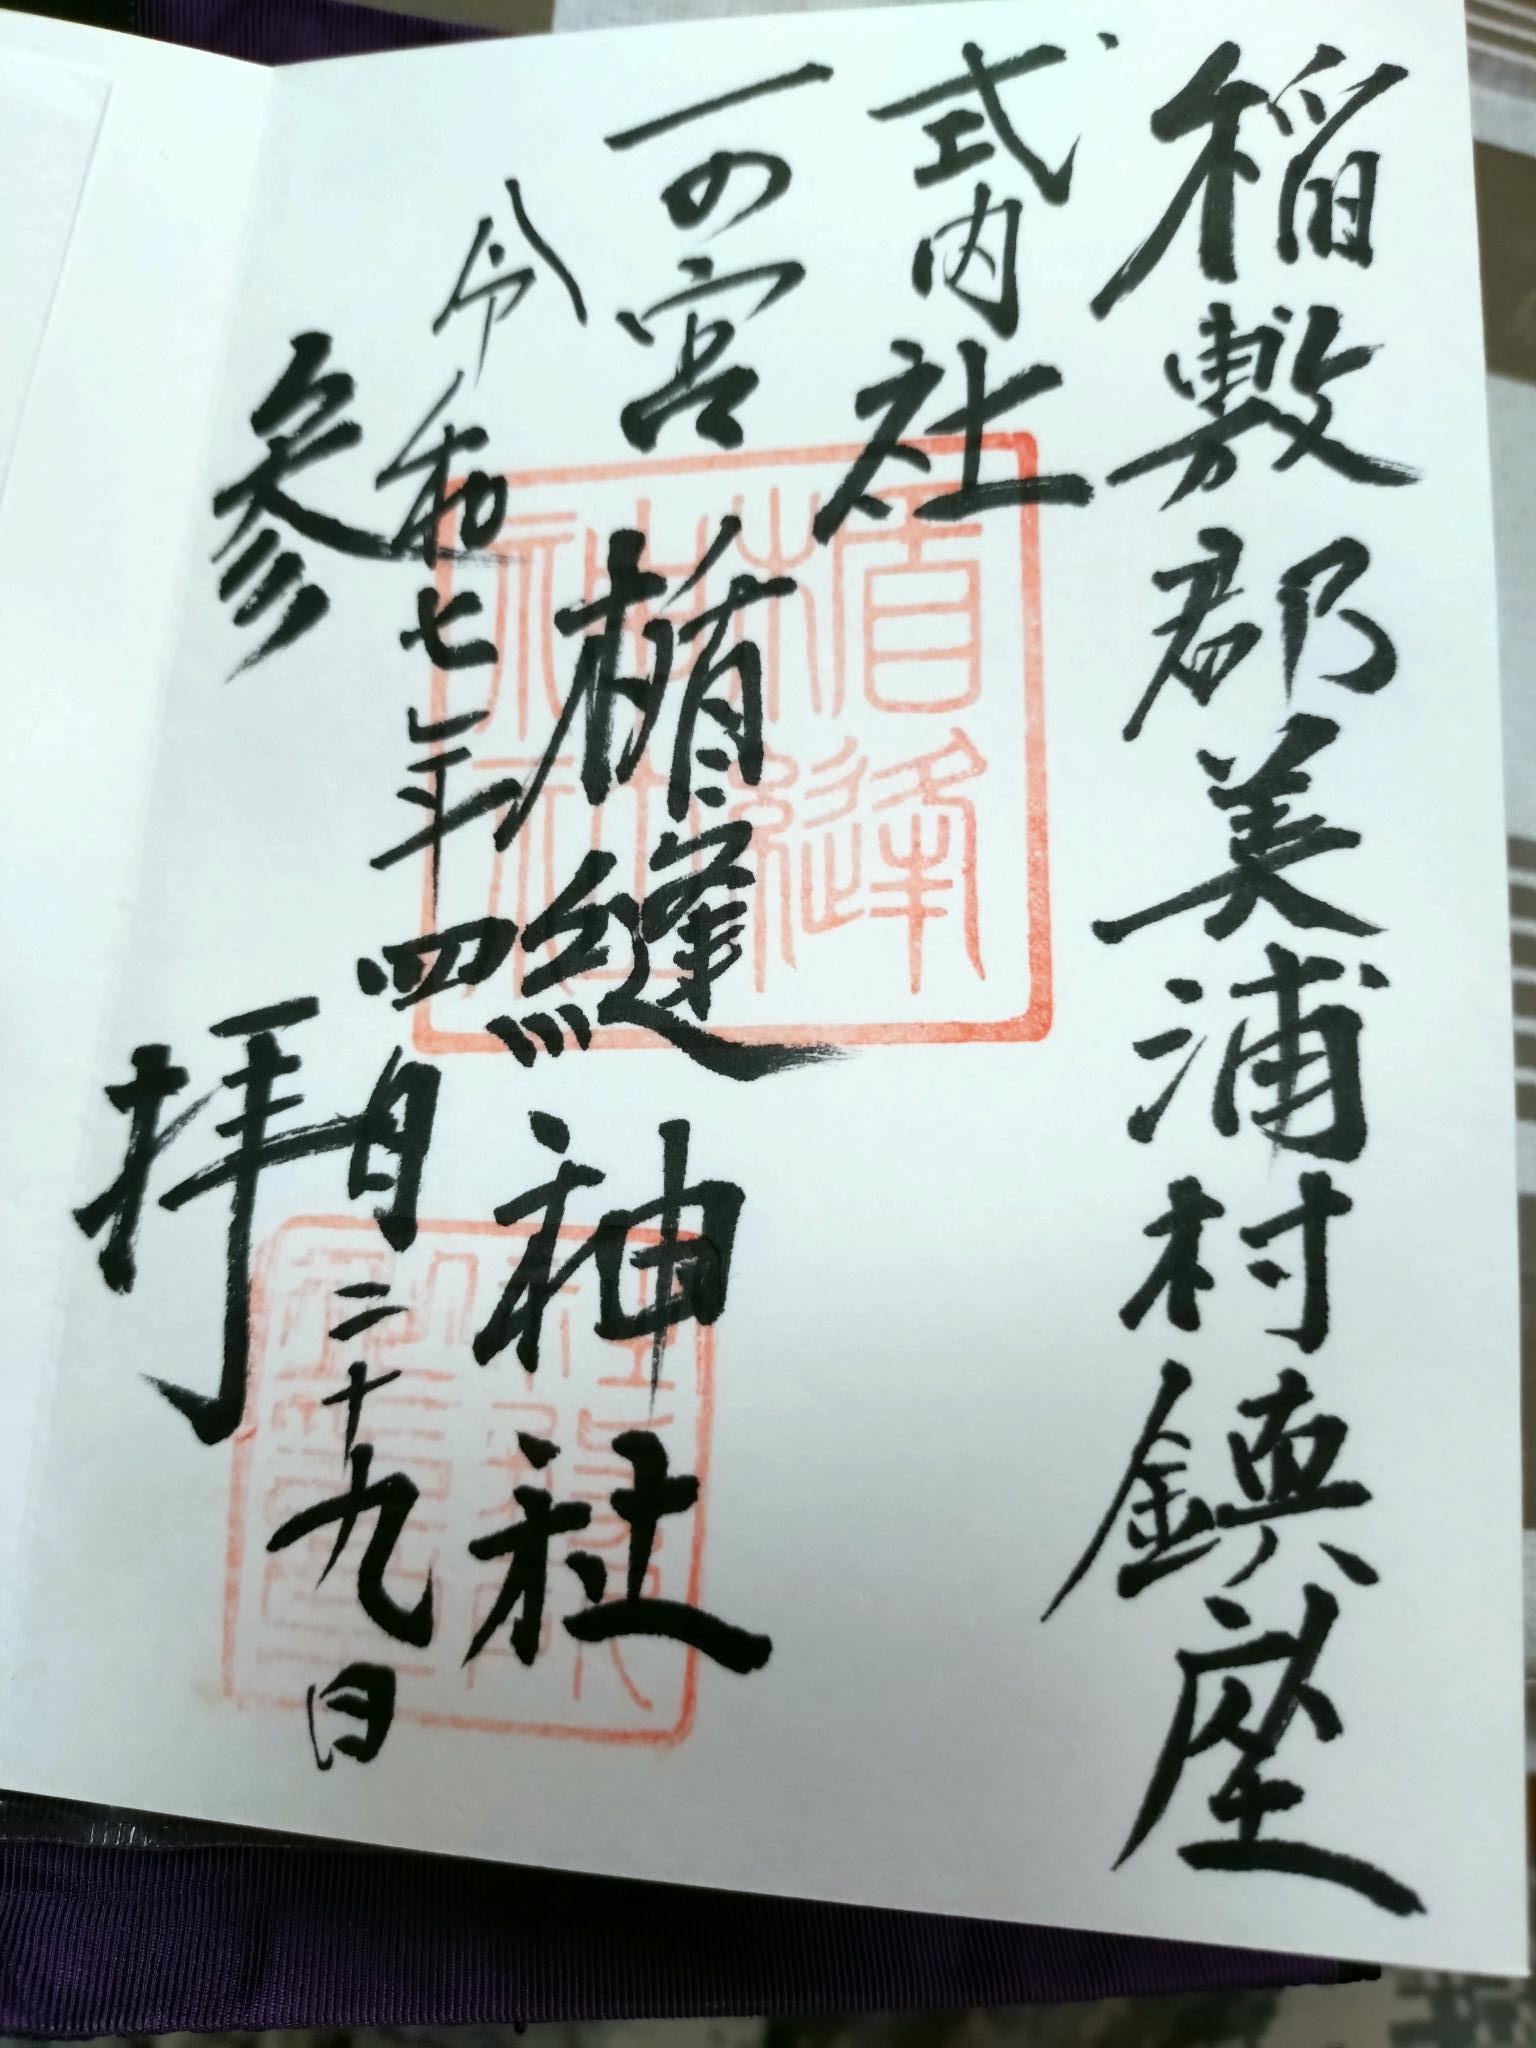 稲敷郡美浦村鎮座
式内社
一の宮 楯縫神社
令和七年四月二十九日
参拝
楯縫神社